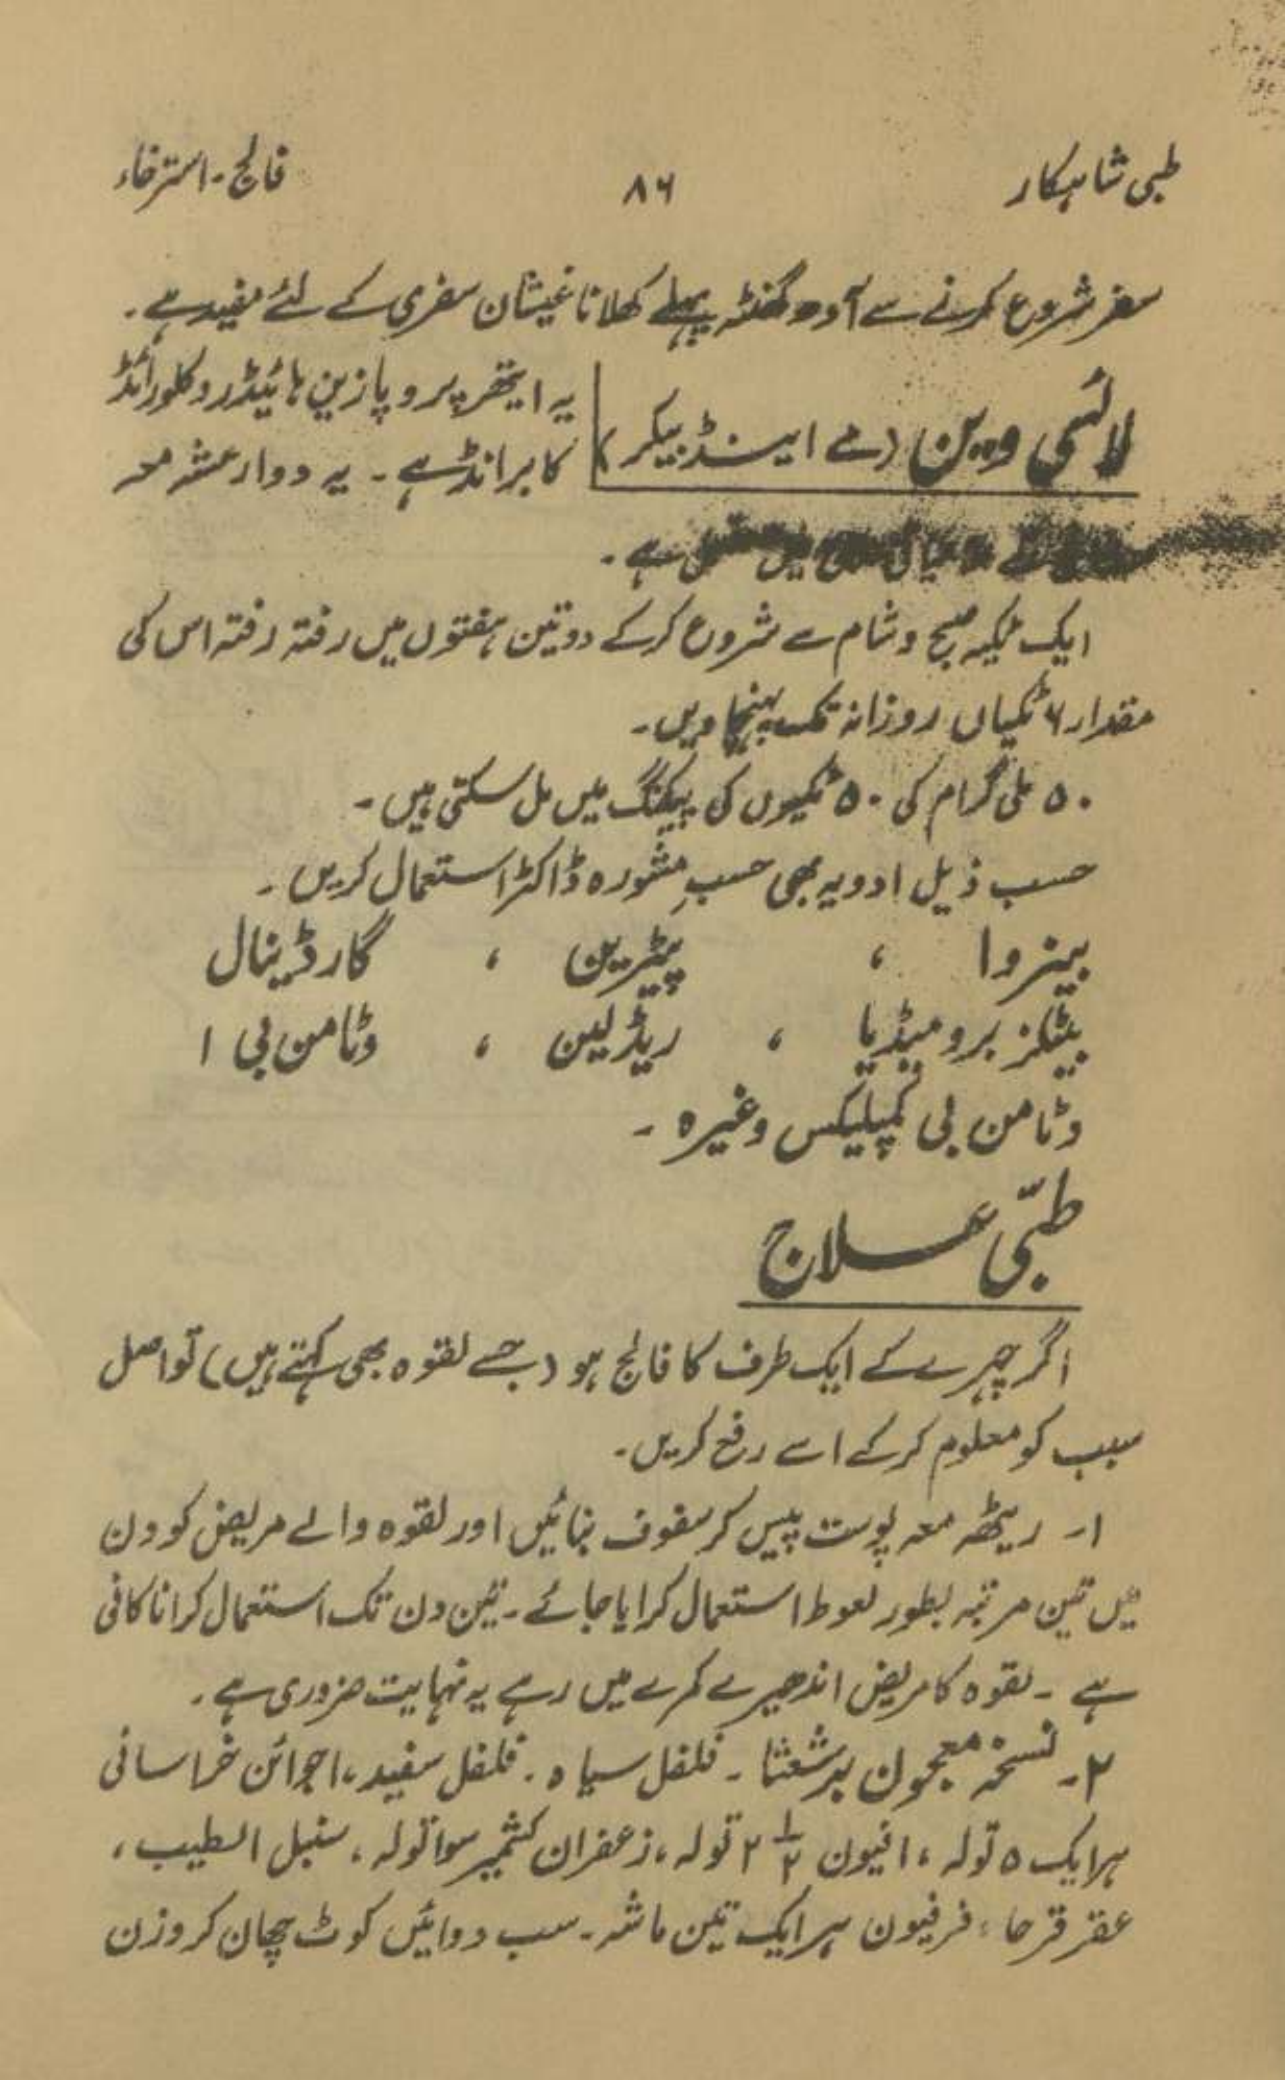 طبی شاہکار ۸۶ فالج۔استرخاء
سفر شروع کرنے سے آدھ گھنٹہ پہلے کھلانا غیثان سفری کے لئے مفید ہے۔
لائسی وین (مے اینڈ بیکر)
یہ ایتھرپروپازین ہائیڈروکلورائڈ
کا برانڈ ہے۔ یہ دوا رعشہ معہ
میں ہے۔
ایک ٹکیہ صبح و شام سے شروع کرکے دو تین ہفتوں میں رفتہ رفتہ اس کی
مقدار ۶ ٹکیاں روزانہ تک پہنچا دیں۔
۵۰ ملی گرام کی ۵۰ ٹکیوں کی پیکنگ میں مل سکتی ہیں۔
حسب ذیل ادویہ بھی حسبِ مشورہ ڈاکٹر استعمال کریں۔
بینزوا ، پیٹرین ، گارڈینال
بیٹکز برومیڈیا ، ریڈلین ، وٹامن بی ۱
وٹامن بی کمپلیکس وغیرہ۔
طبّی علاج
اگر چہرے کے ایک طرف کا فالج ہو (جسے لقوہ بھی کہتے ہیں) تو اصل
سبب کو معلوم کرکے اسے رفع کریں۔
۱۔ ریٹھہ معہ پوست پیس کر سفوف بنائیں اور لقوہ والے مریض کو دن
میں تین مرتبہ بطور لعوط استعمال کرایا جائے۔ تین دن تک استعمال کرانا کافی
ہے۔ لقوہ کا مریض اندھیرے کمرے میں رہے یہ نہایت ضروری ہے۔
۲۔ نسخہ معجون برشعثا۔ فلفل سیاہ۔ فلفل سفید، اجوائن خراسانی
ہر ایک ۵ تولہ، افیون ۲ ۱/۲ تولہ، زعفران کشمیر سوا تولہ، سنبل الطیب،
عقرقرحا، فرفیون ہر ایک تین ماشہ۔ سب دوائیں کوٹ چھان کر وزن